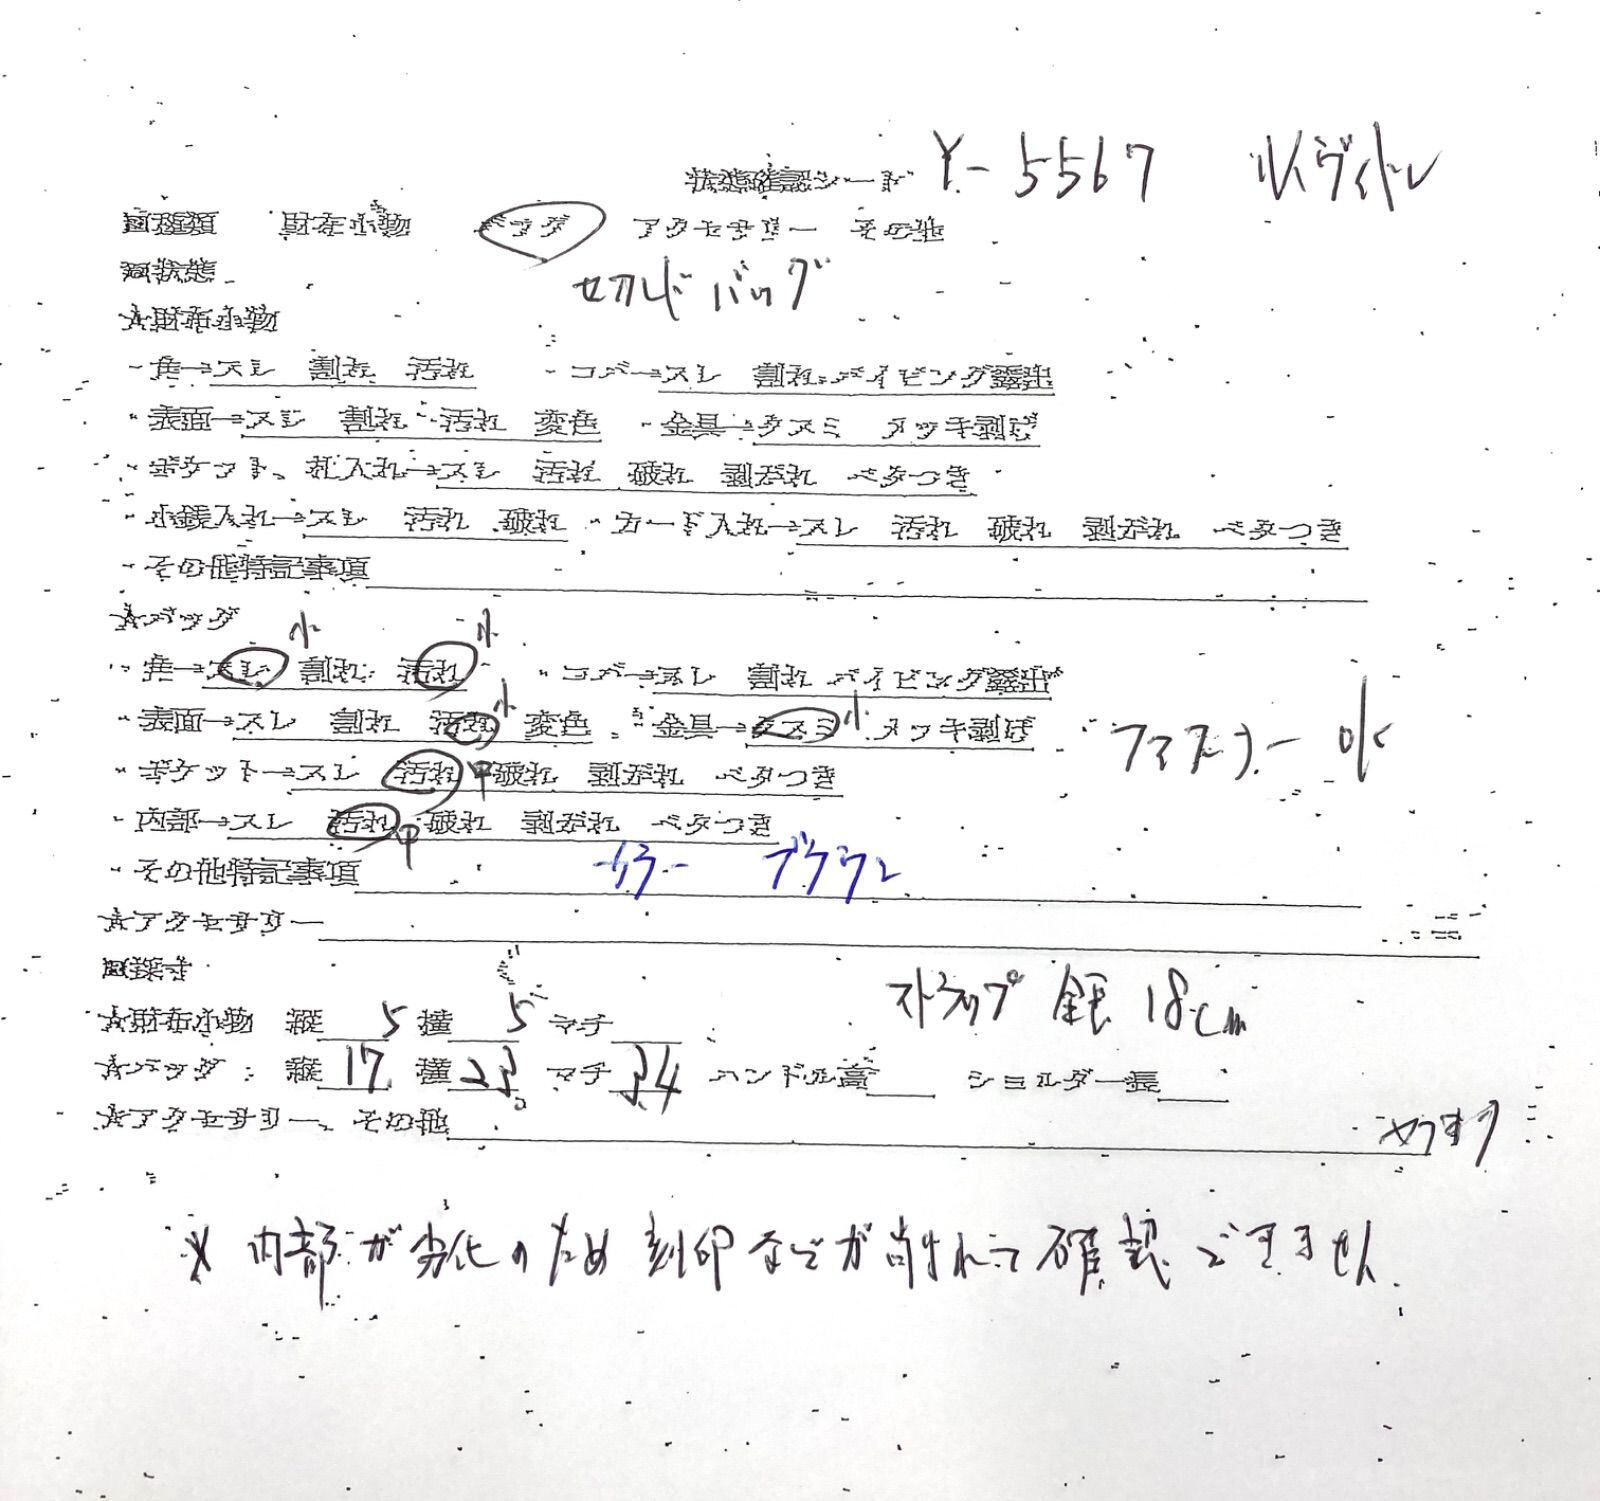 状態確認シート Y-5567 ルイヴィトン
回種類 財布小物 バッグ アクセサリー その他
回状態 セカンドバッグ
☆財布小物
・角→スレ 割れ 汚れ ・コバ→スレ 割れ パイピング露出
・表面→スレ 割れ 汚れ 変色 ・金具→クスミ メッキ剥げ
・ポケット、札入れ→スレ 汚れ 破れ 剥がれ ベタつき
・小銭入れ→スレ 汚れ 破れ ・カード入れ→スレ 汚れ 破れ 剥がれ ベタつき
・その他特記事項
☆バッグ 小 小
・角→スレ 割れ 汚れ ・コバ→スレ 割れ パイピング露出
・表面→スレ 割れ 汚れ 小 変色 ・金具→クスミ 小 メッキ剥げ ファスナー OK
・ポケット→スレ 汚れ 中 破れ 剥がれ ベタつき
・内部→スレ 汚れ 中 破れ 剥がれ ベタつき
・その他特記事項 カラー ブラウン
☆アクセサリー
回採寸 ストラップ 全長 18cm
☆財布小物 縦 5 横 5 マチ
☆バッグ 縦 17 横 23 マチ ハンドル高 ショルダー長
☆アクセサリー、その他 ヤフオク
※内部が劣化のため刻印などが削れて確認できません